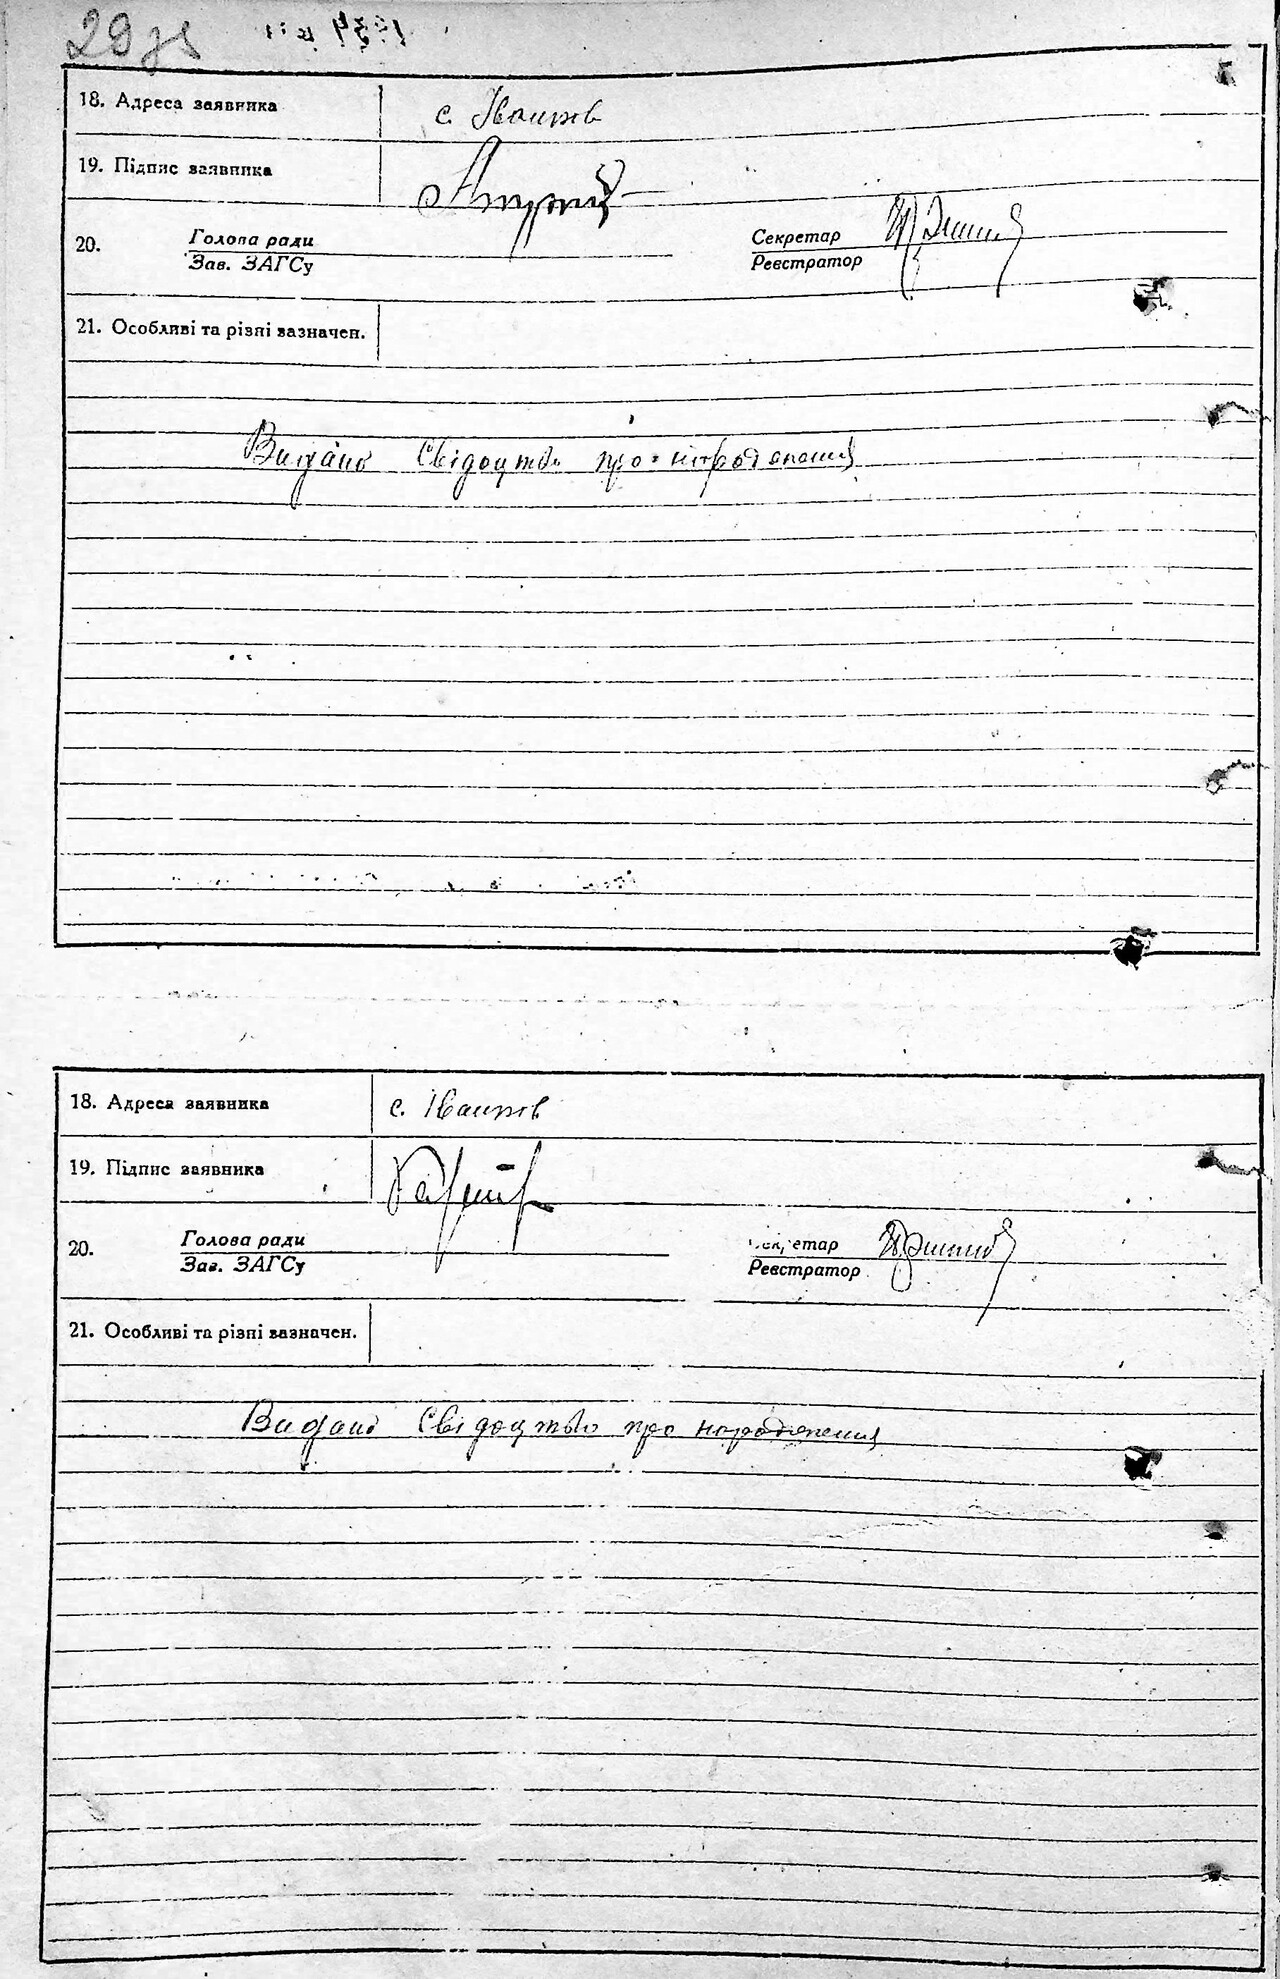 29 зв
18. Адреса заявника с. Іванків
19. Підпис заявника
20. Голова ради Секретар
Зав. ЗАГСу Реєстратор
21. Особливі та різні зазначен.
Видано Свідоцтво про народження
18. Адреса заявника с. Іванків
19. Підпис заявника
20. Голова ради Секретар
Заг. ЗАГСу Реєстратор
21. Особливі та різні зазначен.
Видано Свідоцтво про народження